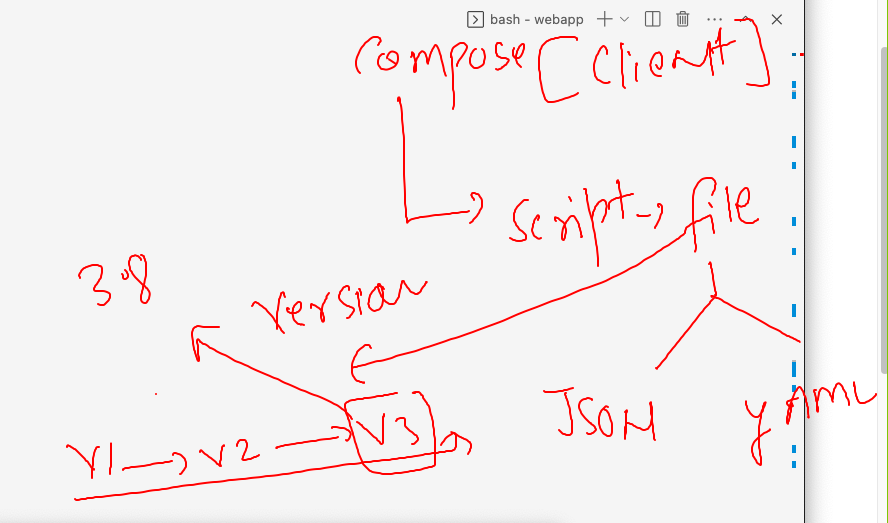 bash - webapp
compose [client]
script → file
3.8
version
JSON yAML
V1 → V2 → V3